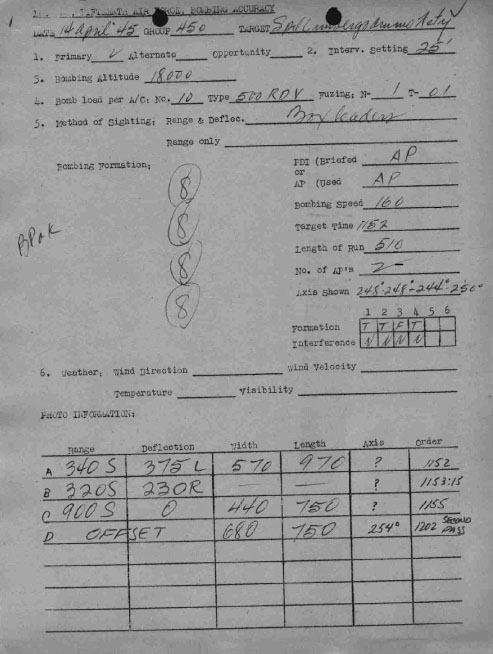 FIFTEENTH AIR FORCE, BOMBING ACCURACY
DATE 14 April 45 GROUP 450 TARGET Ammo
1. Primary ✓ Alternate Opportunity 2. Interv. Setting 25'
3. Bombing Altitude 18000
4. Bomb load per A/C: No. 10 Type 500 RDX Fuzing: N- .1 T- .01
5. Method of Sighting: Range & Deflec. Box leaders
Range only
Bombing Formation:
8
8
8
8
BPOK
PDI (Briefed AP
or
AP (Used AP
Bombing Speed 160
Target Time 1152
Length of Run 510
No. of AP's 2
Axis Shown 248°-248°-244°-250°
1 2 3 4 5 6
Formation T T F T
Interference N N N N
6. Weather: Wind Direction Wind Velocity
Temperature Visibility
PHOTO INFORMATION:
Range Deflection Width Length Axis Order
A 340 S 375 L 570 970 ? 1152
B 320S 230R — — ? 1153:15
C 900 S 0 440 750 ? 1155
D OFFSET 680 750 254° 1202 SECOND PASS